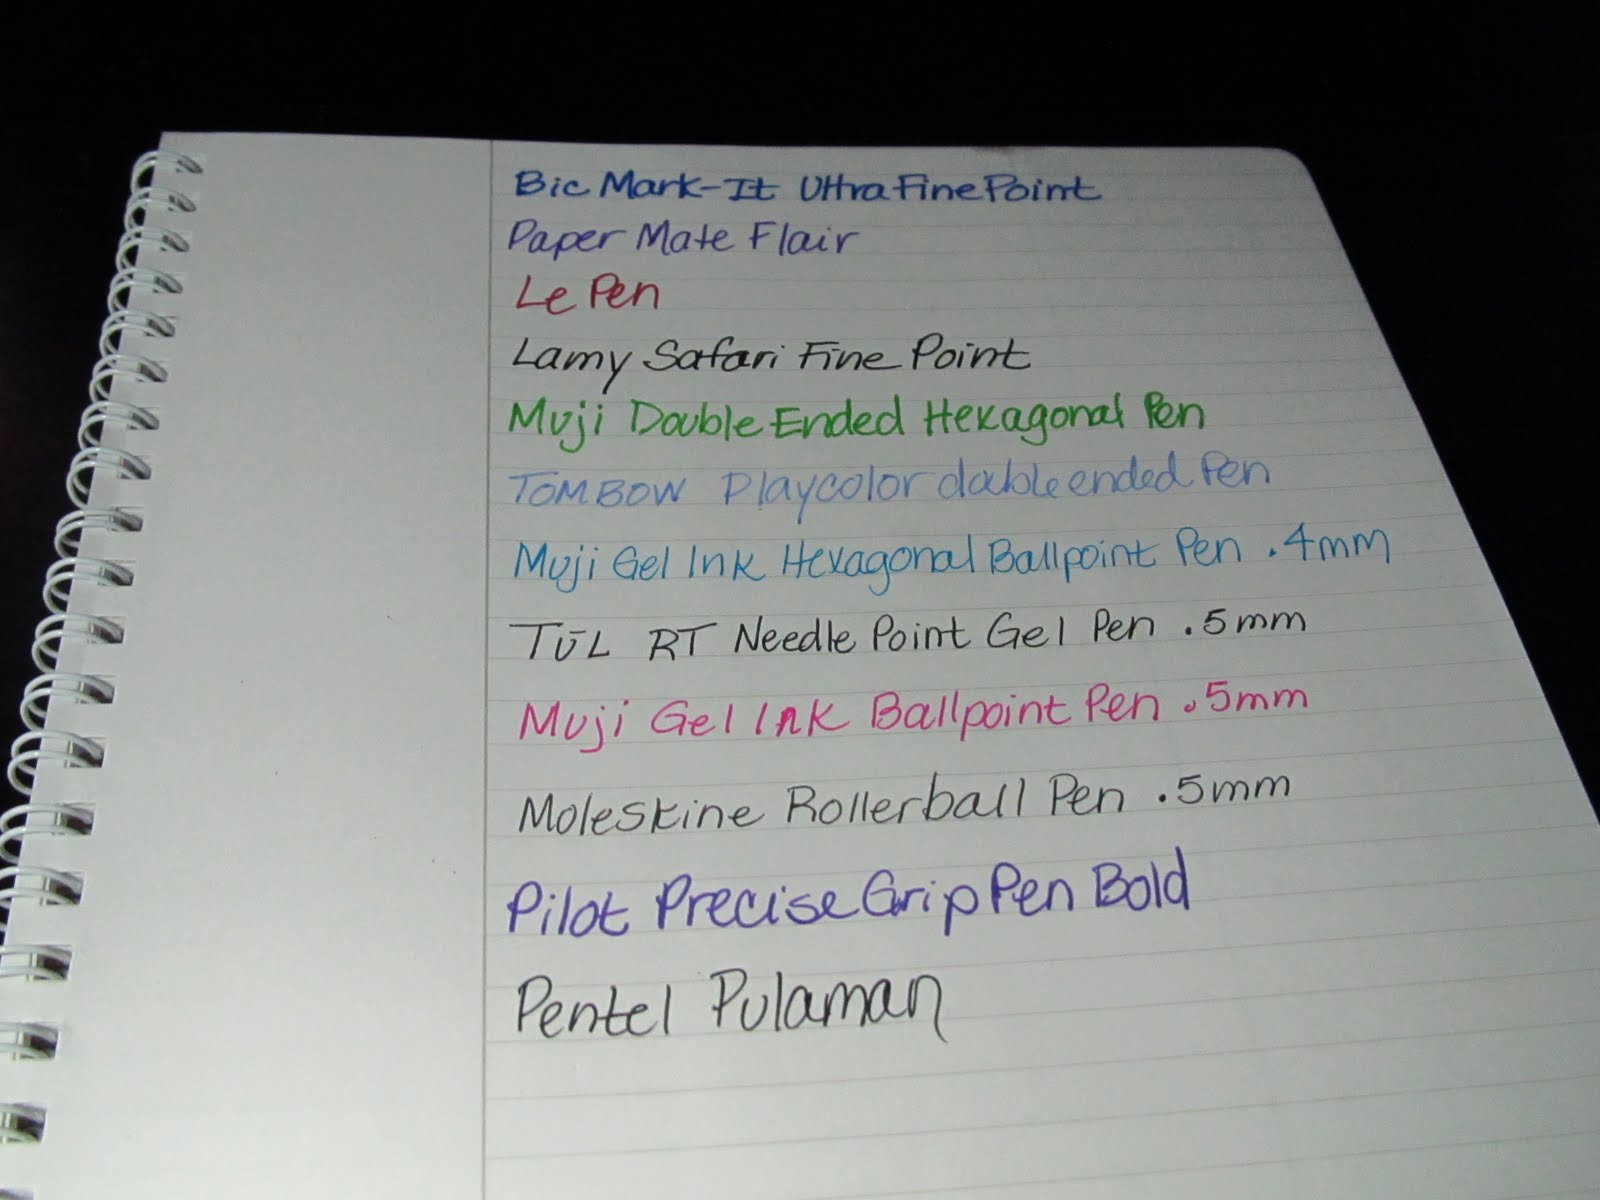 Bic Mark-It Ultra Fine Point
Paper Mate Flair
Le Pen
Lamy Safari Fine Point
Muji Double Ended Hexagonal Pen
TOMBOW Playcolor double ended Pen
Muji Gel Ink Hexagonal Ballpoint Pen .4mm
TŪL RT Needle Point Gel Pen .5mm
Muji Gel Ink Ballpoint Pen .5mm
Moleskine Rollerball Pen .5mm
Pilot Precise Grip Pen Bold
Pentel Pulaman